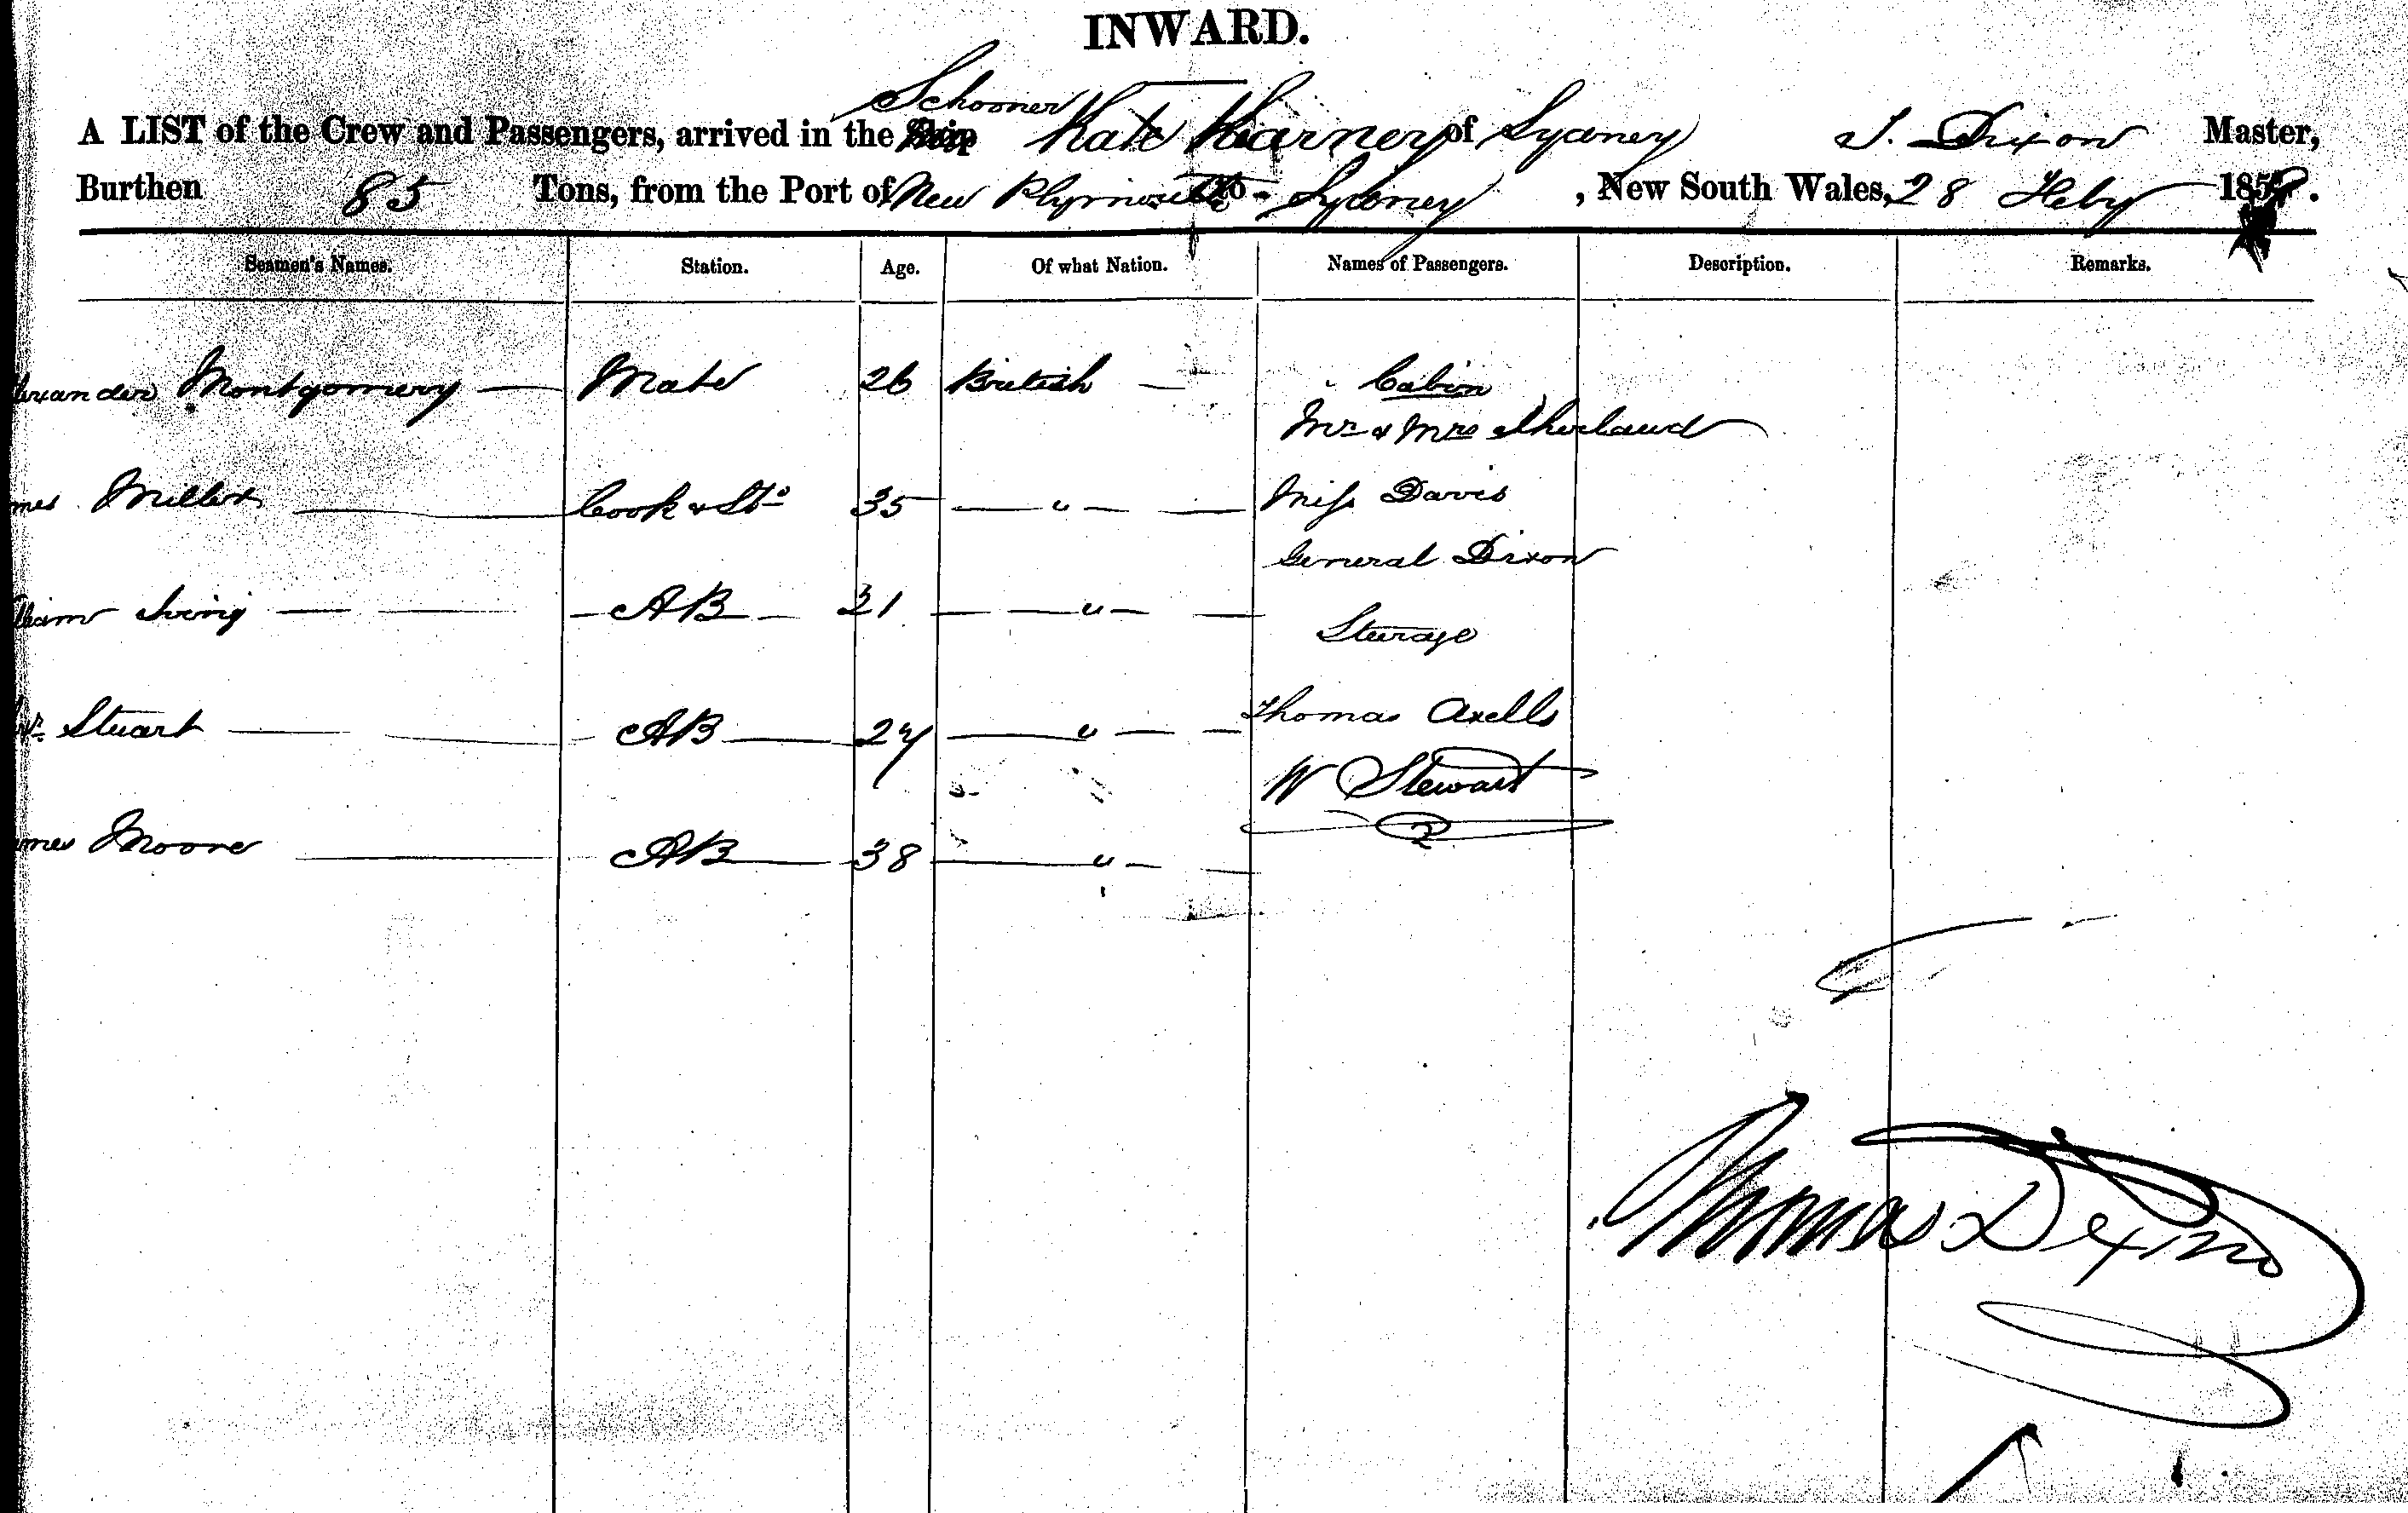 INWARD.
Schooner
A LIST of the Crew and Passengers, arrived in the Ship Kate Kearney of Sydney T. Dixon Master,
Burthen 85 Tons, from the Port of New Plymouth to Sydney, New South Wales, 28 Feby 185
Seamen's Names. Station. Age. Of what Nation. Names of Passengers. Description. Remarks.
exander Montgomery — Mate 26 British — Cabin
Mr & Mrs
mes Miller — Cook & Std 35 — " — Miss Davis
General Dixon
lliam Irving — — AB — 21 — " —
Steerage
Stuart — AB — 27 — " — Thomas Axells
W Stewart
2
ames Moore — AB — 38 — " —
Thomas Dixon